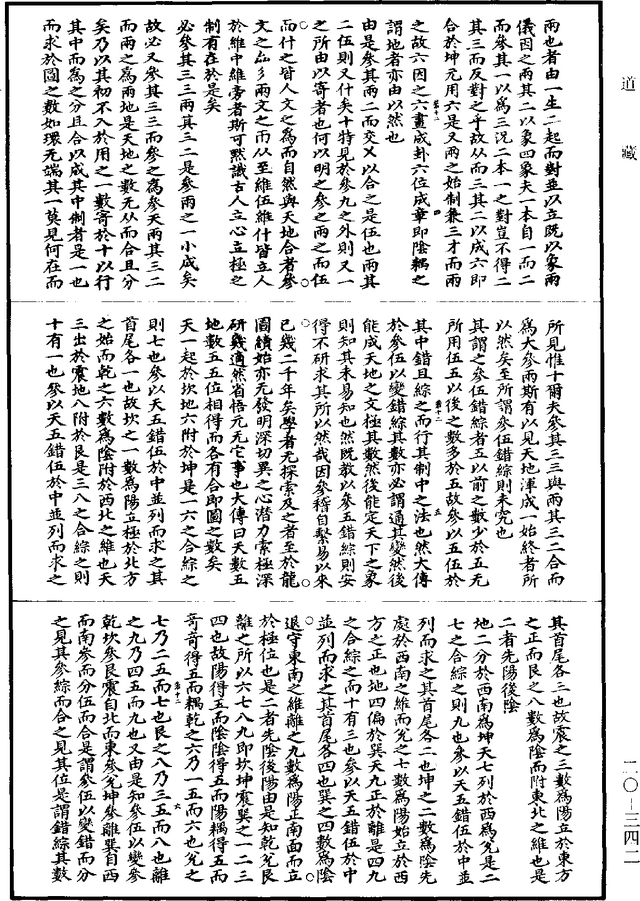 道藏
兩也者由一生二起而對並以立既以象兩
儀因之兩其二以象四象夫一本自一而二
而參其一以爲三況二本一之對豈不得二
其三而反對之乎故从而三其二以成六即
合於坤元用六是又兩之始制兼三才而兩
四
之故六因之六畫成卦六位成章即陰耦之
謂地者亦由以然也
由是參其兩二而交乂以合之是伍也兩其
二伍則又什矣十特見於參九之外則又一
之所由以寄者也何以明之參之兩之而伍
而什之皆人文之爲而自然與天地合者參
文之厽彡兩文之㒳从至維伍維什皆立人
於維中維旁者斯可黙識古人立心立極之
制有在於是矣
必參其三三兩其三二是參兩之一小成矣
故必又參其三三而參之爲參天兩其三二
而兩之爲兩地是天地之數无从而合且分
矣乃以其初不入於用之一數寄於十以行
其中而爲之分且合以成其中制者是一也
而求於圖之數如環无端其一莫見何在而
所見惟十爾夫參其三三與兩其三二合而
爲大參兩斯有以見天地渾成一始終者所
以然矣至所謂參伍錯綜則未究也
其謂之參伍錯綜者五以前之數少於五无
所用伍五以後之數多於五故參以五伍於
五
其中錯且綜之而行其制中之法也然大傳
於參伍以變錯綜其數亦必謂通其變然後
能成天地之文極其數然後能定天下之象
則知其未易知也然既教以參五錯綜則安
得不研求其所以然哉因參稽自繫易以來
已幾二千年矣學者无探索及之者至於龍
圖績始亦无發明深切異之心潛力索極深
研幾適然省悟元元它事也大傳曰天數五
地數五五位相得而各有合即圖之數矣
天一起於坎地六附於坤是一六之合綜之
則七也參以天五錯伍於中並列而求之其
首尾各一也故坎之一數爲陽立極於北方
之始而乾之六數爲陰附於西北之維也天
三出於震地八附於艮是三八之合綜之則
十有一也參以天五錯伍於中並列而求之
其首尾各三也故震之三數爲陽立於東方
之正而艮之八數爲陰而附東北之維也是
二者先陽後陰
地二分於西南爲坤天七列於西爲兊是二
七之合綜之則九也參以天五錯伍於中並
列而求之其首尾各二也坤之二數爲陰先
處於西南之維而兊之七數爲陽始立於西
方之正也地四偏於巽天九正於離是四九
之合綜之而十有三也參以天五錯伍於中
並列而求之其首尾各四也巽之四數爲陰
退守東南之維離之九數爲陽正南面而立
於極位也是二者先陰後陽由是知乾兊艮
離之所以六七八九即坎坤震巽之一二三
四也故陽得五而陰陰得五而陽耦得五而
奇奇得五而耦乾之六乃一五而六也兊之
六
七乃二五而七也艮之八乃三五而八也離
之九乃四五而九也又由是知參伍以變參
乾坎參艮震自北而東參兊坤參離巽自西
而南參而分伍而合是謂參伍以變錯而分
之見其參綜而合之見其位是謂錯綜其數
二〇–三四二